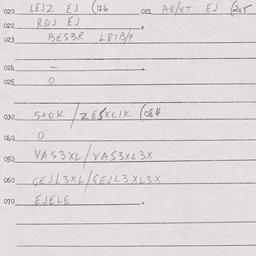 020 LEJZ EJ (126 021 AR/XT EJ (205
022 ROJ EJ .
023 BES3R L8IB/P
024 — .
025 0
030 STOK / ZESXCIK (084
040 0
050 VAS3XL / VAS3XL3X
060 GEJL3XL / GEJL3XL3X
070 EJELE .